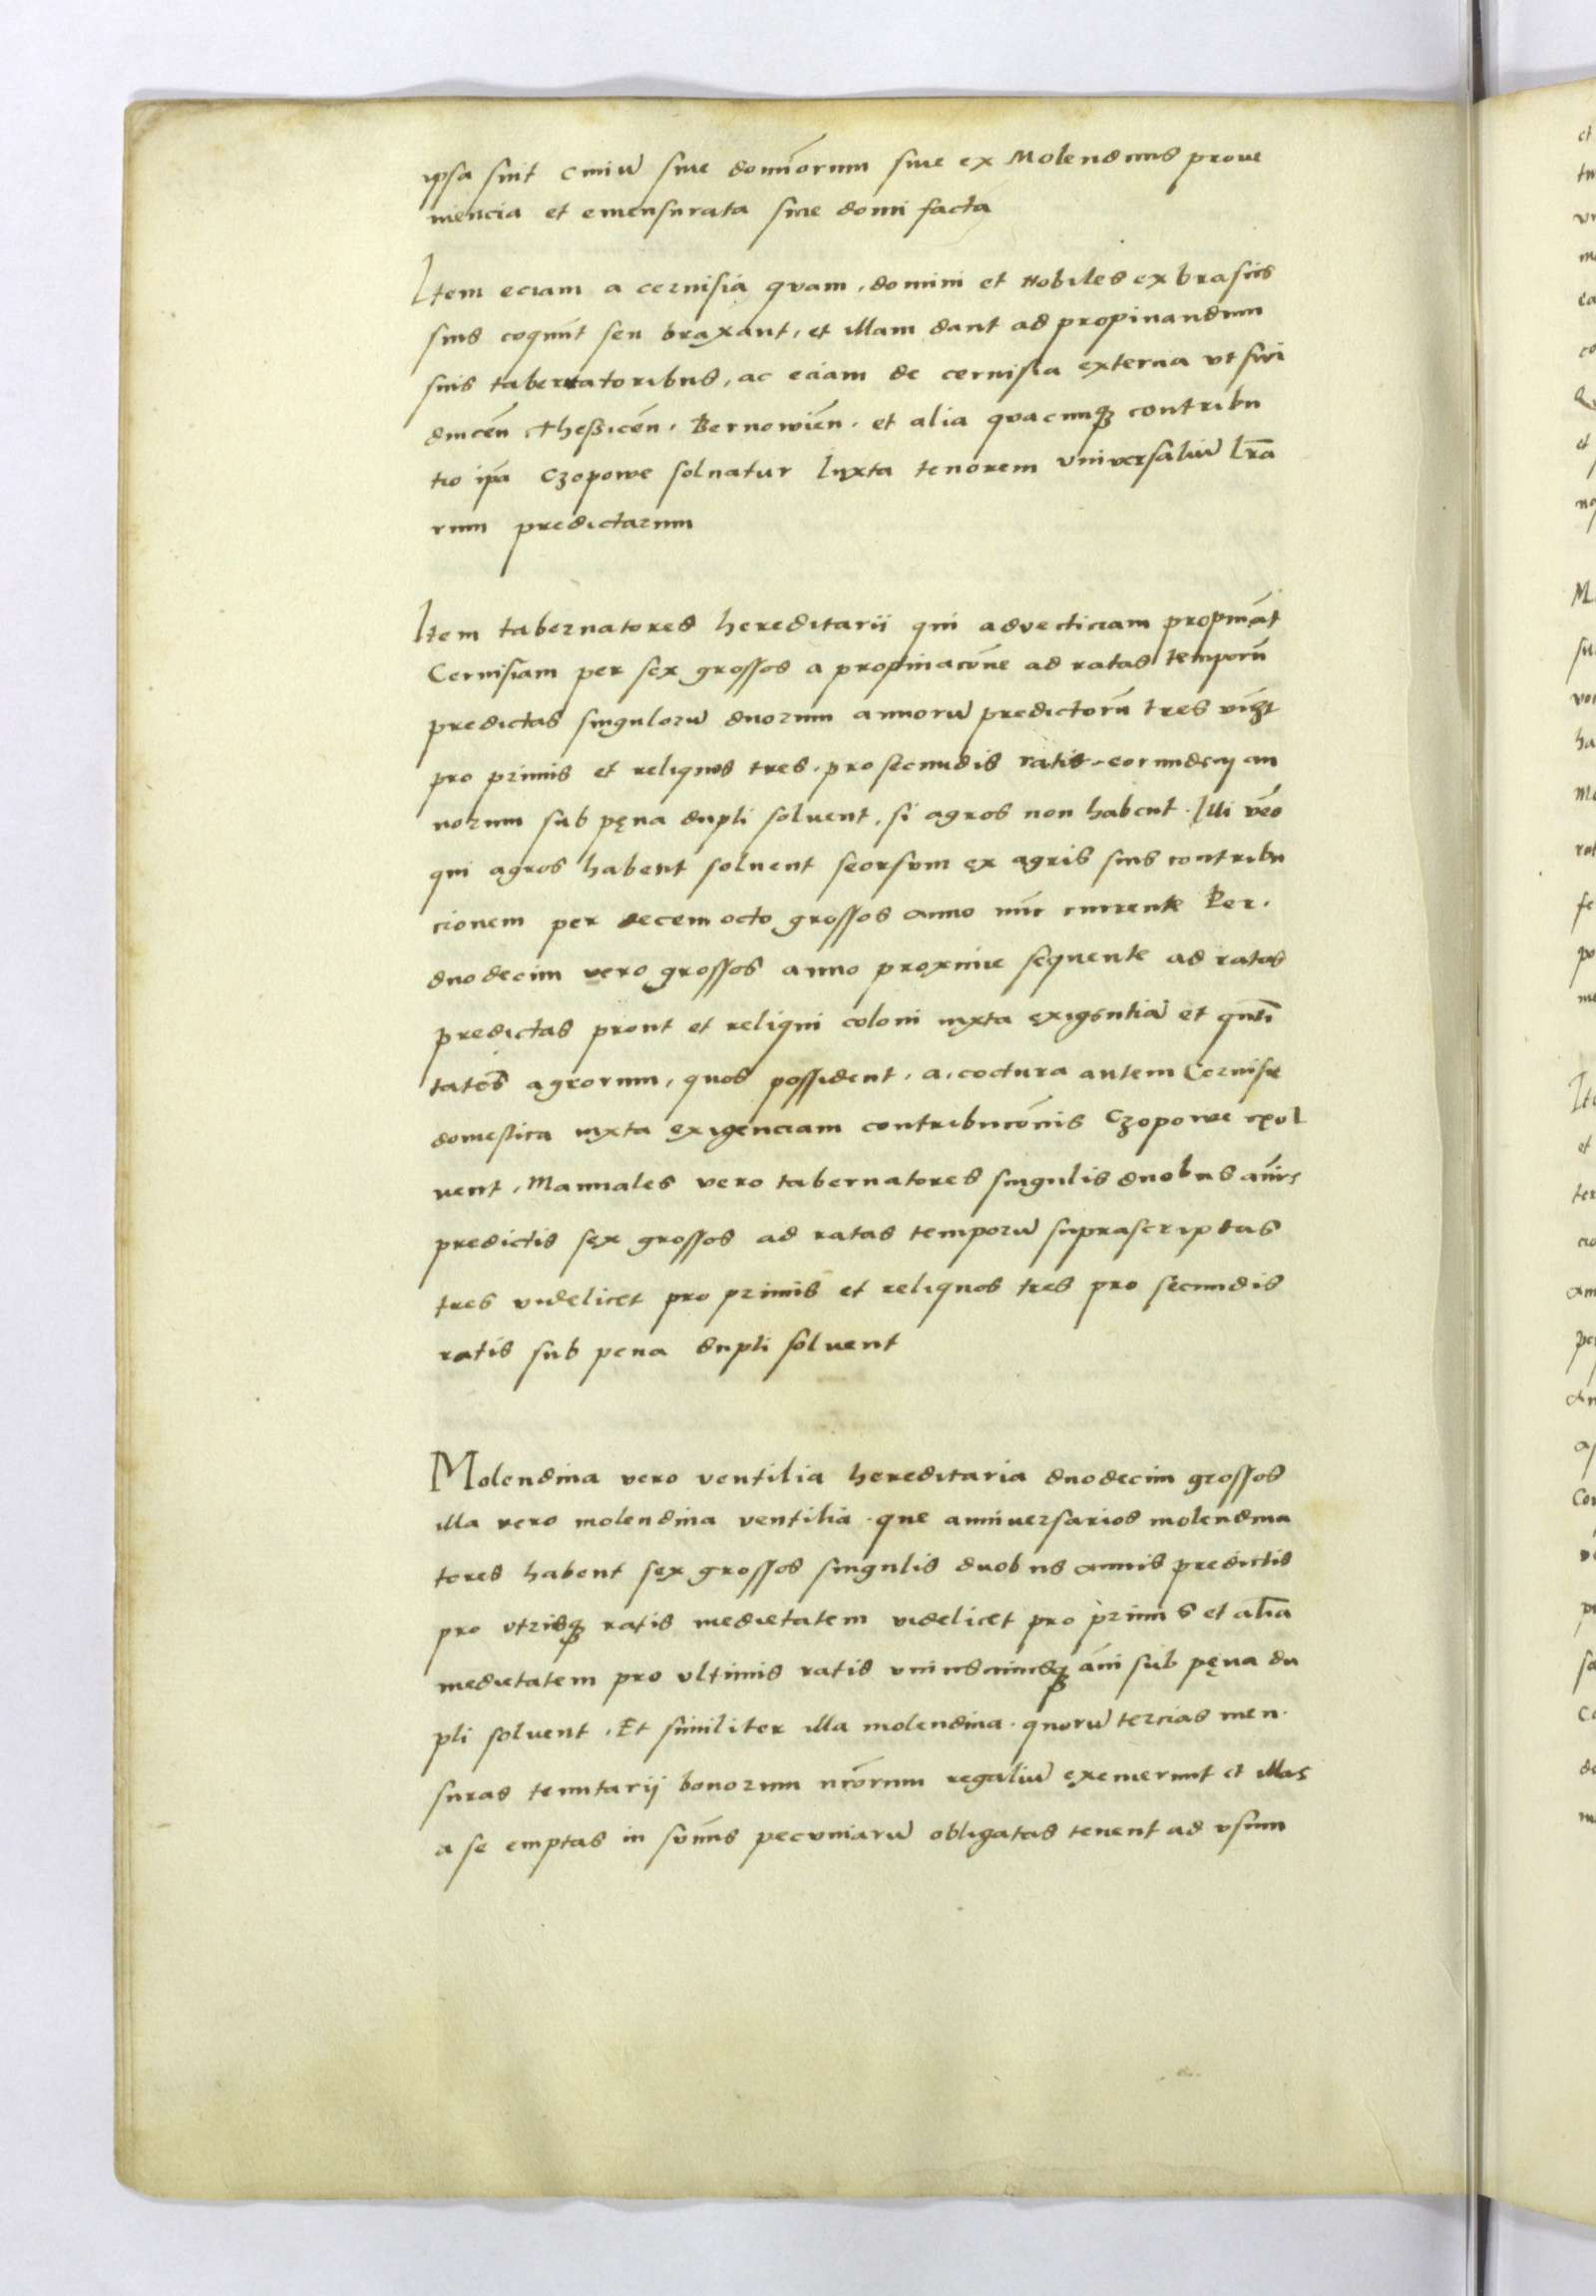 ipsa sint civiu͂ siue domino͂rum siue ex Molendinis proue
niencia et emensurata siue domi facta
Item eciam a ceruisia quam, domini et Nobiles ex brasiis
suis coqunt seu braxant, et illam dant ad propinandum
suis tabernatoribus, ac eciam de ceruisia externa vt Swi
dnice͂n Thessice͂n, Bernowie͂n. et alia quacunqꝫ contribu
tio ip͂a Czopowe soluatur Iuxta tenorem vniuersaliu͂ l͂ra
rum predictarum
Item tabernatores hereditarii qui advecticiam propina͂t
Ceruisiam per sex grossos a propinaco͂ne ad ratas temporu͂
predictas singuloru͂ duorum annoru͂ predictoru͂ tres vi͂ꝫt
pro primis et reliquos tres, pro secundis ratis eorundem an
norum sub pęna dupli soluent, si agros non habent. Illi ve͂o
qui agros habent soluent seorsum ex agris suis contribu
cionem per decem octo grossos anno nu͂c currente Per.
duodecim vero grossos anno proxime sequente ad ratas
predictas prout et reliqui coloni iuxta exigentia͂ et qua͂ti
tates agrorum, quos possident, a, coctura autem Ceruisie
domestica iuxta exigenciam contribuco͂nis Czopowe exol
uent, Manuales vero tabernatores singulis duobus an͂is
predictis sex grossos ad ratas temporu͂ suprascriptas
tres videlicet pro primis et reliquos tres pro secundis
ratis sub pena dupli soluent
Molendina vero ventilia hereditaria duodecim grossos
illa vero molendina ventilia que anniuersarios molendina
tores habent sex grossos singulis duobus annis predictis
pro vtrisqꝫ ratis medietatem videlicet pro primis et alia͂
medietatem pro vltimis ratis vniuscuiusqꝫ an͂i sub pęna du
pli soluent. Et similiter illa molendina quoru͂ tercias men
suras tenutarij bonorum nr͂orum regaliu͂ exemerunt et illas
a se emptas in su͂mis pecuniaru͂ obligatas tenent ad vsum